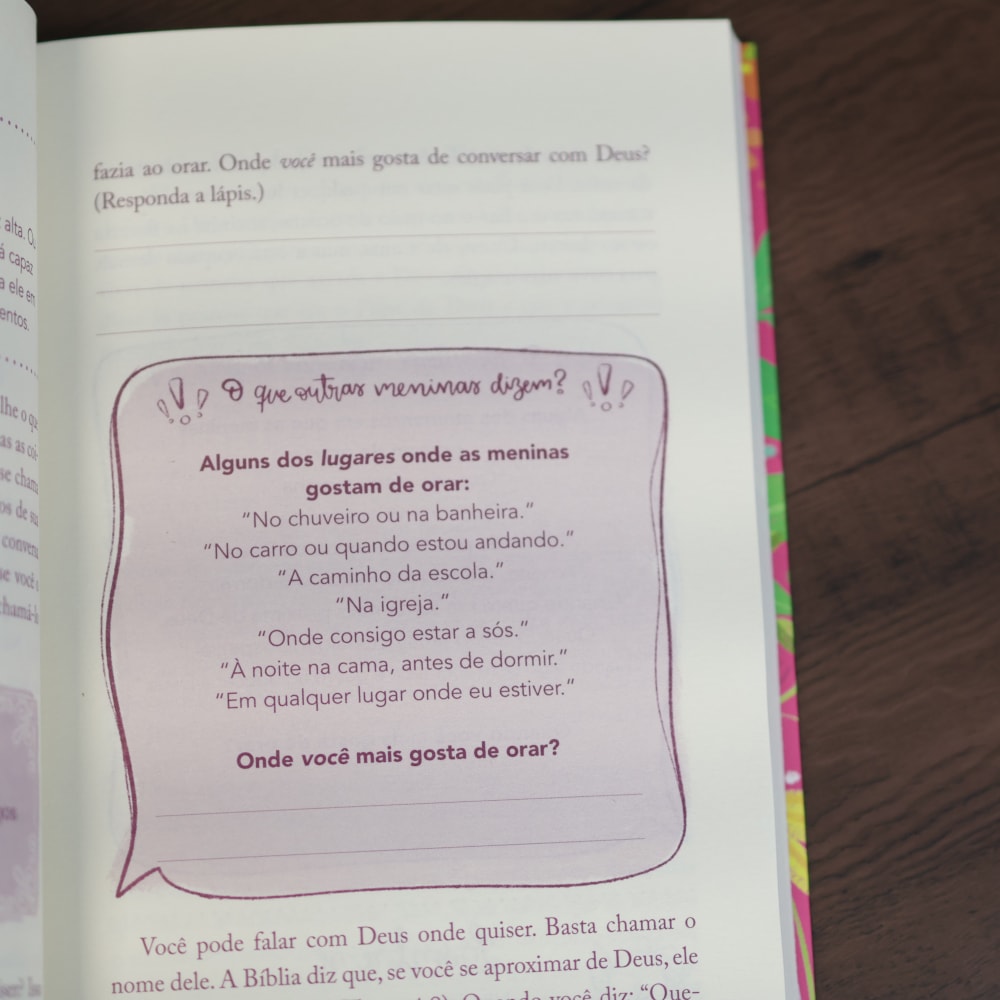 alta.
capaz
ele em
entos.
lhe o
as as
se
os de
se você
fazia ao orar. Onde você mais gosta de conversar com Deus?
(Responda a lápis.)
O que outras meninas dizem?
Alguns dos lugares onde as meninas
gostam de orar:
“No chuveiro ou na banheira.”
“No carro ou quando estou andando.”
“A caminho da escola.”
“Na igreja.”
“Onde consigo estar a sós.”
“À noite na cama, antes de dormir.”
“Em qualquer lugar onde eu estiver.”
Onde você mais gosta de orar?
Você pode falar com Deus onde quiser. Basta chamar o
nome dele. A Bíblia diz que, se você se aproximar de Deus, ele
você diz: “Que-